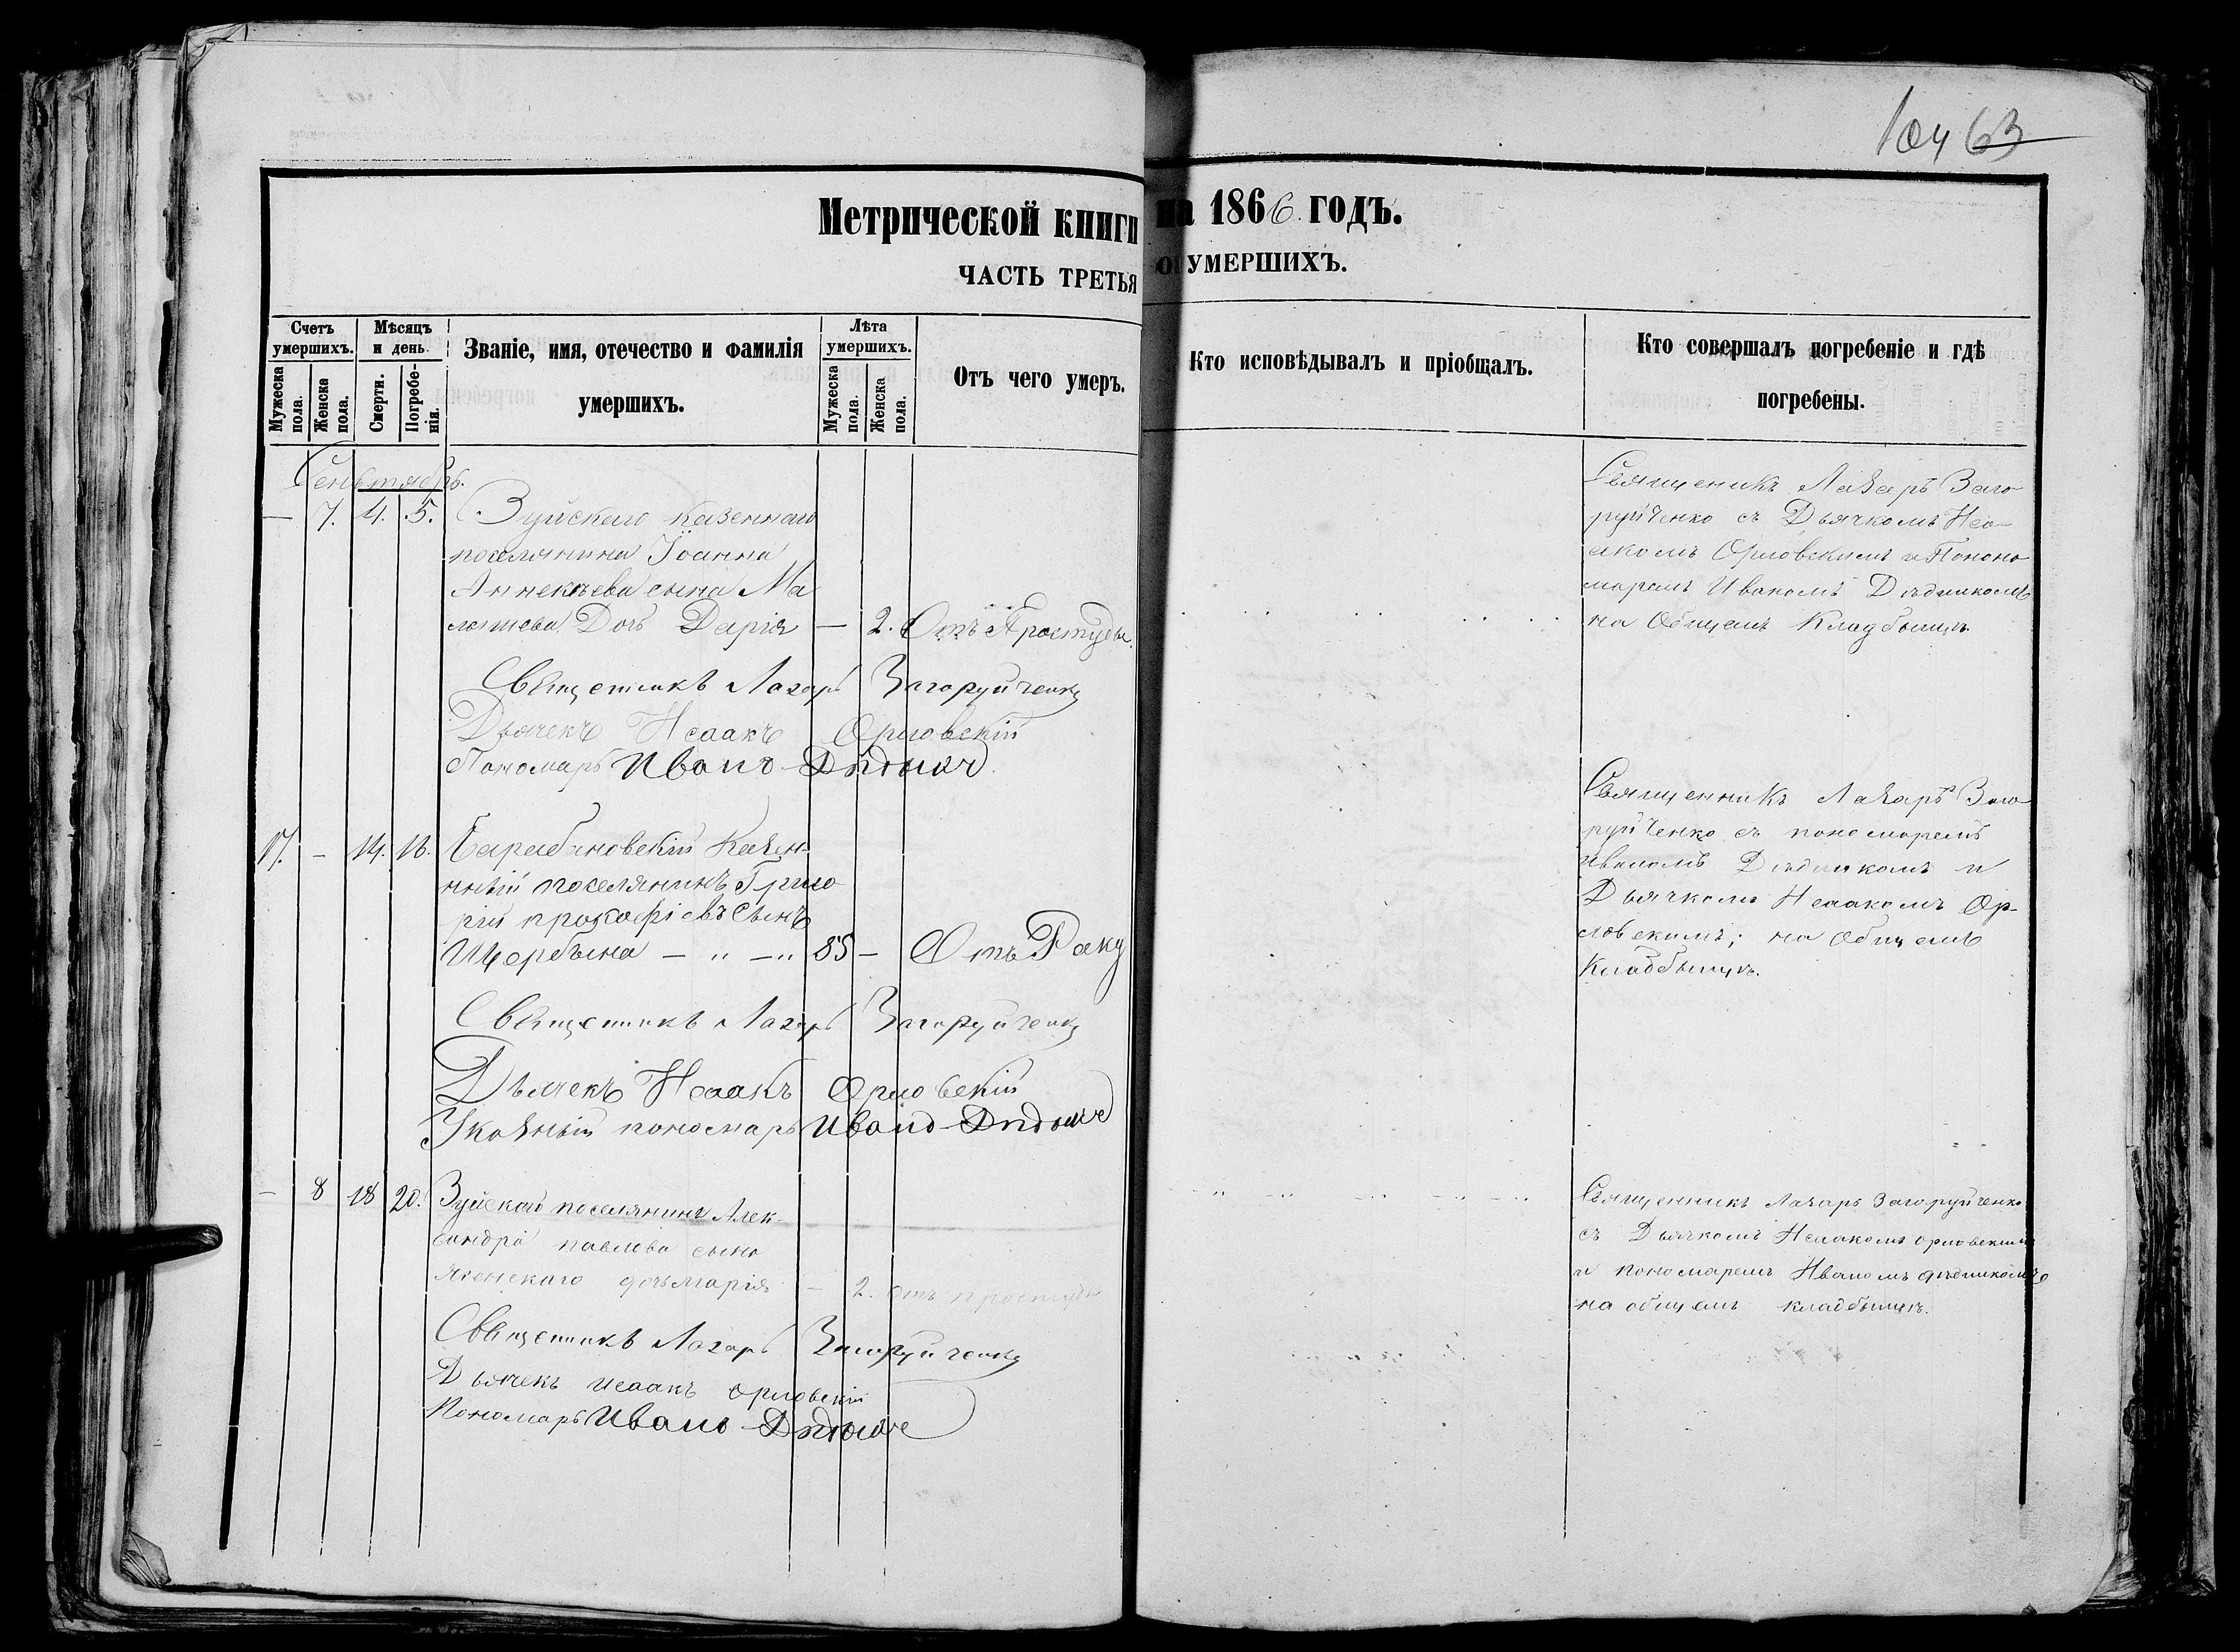 104 63
Метрической книги на 1866 годъ.
ЧАСТЬ ТРЕТЬЯ О УМЕРШИХЪ.
Счетъ умершихъ.
Мужеска пола.
Женска пола.
Мѣсяцъ и день
Смерти.
Погребе-
нія.
Званіе, имя, отечество и фамилія
умершихъ.
Лѣта умершихъ.
Мужеска пола.
Женска пола.
Отъ чего умеръ.
Кто исповѣдывалъ и пріобщалъ.
Кто совершалъ погребеніе и гдѣ
погребены.
Сеньтябрь.
— 7. 4. 5. Зуйскаго казеннаго
поселянина Іоанна
сына Ма
Дочь Дарія — 2. Отъ Простуды.
Священикъ Лазарь Заго
руйченко съ Дьячкомъ Иса-
акомъ Орловскимъ и Поно
маремъ Иваномъ Дѣдникомъ
на Общемъ Кладбыщѣ.
Священникъ Лазарь Загоруйченко
Дьячекъ Исаакъ Орловскій
Пономарь Иванъ
17. — 14. 16. Карабановскій Казен-
ный поселянинъ Григо
рій прокофіевъ Сынъ
Щербына — " — " 85 — Отъ Раку
Священникъ Лазарь Заго
руйченко съ пономаремъ
Иваномъ Дѣдникомъ и
Дьячкомъ Исаакомъ Ор-
ловскимъ; на Общемъ
Кладбыщѣ.
Священникъ Лазарь Загоруйченко
Дьячекъ Исаакъ Орловскій
Указный пономарь Иванъ
— 8 18 20. Зуйскаго поселянина Алек-
сандра павлова сына
дочь Марія — 2. отъ простуды
Священникъ Лазарь Загоруйченко
съ Дьячкомъ Исаакомъ орловскимъ
и пономаремъ Иваномъ дѣдникомъ
на общемъ кладбыщѣ.
Священникъ Лазарь Загоруйченко
Дьячекъ Исаакъ Орловскій
Пономарь Иванъ